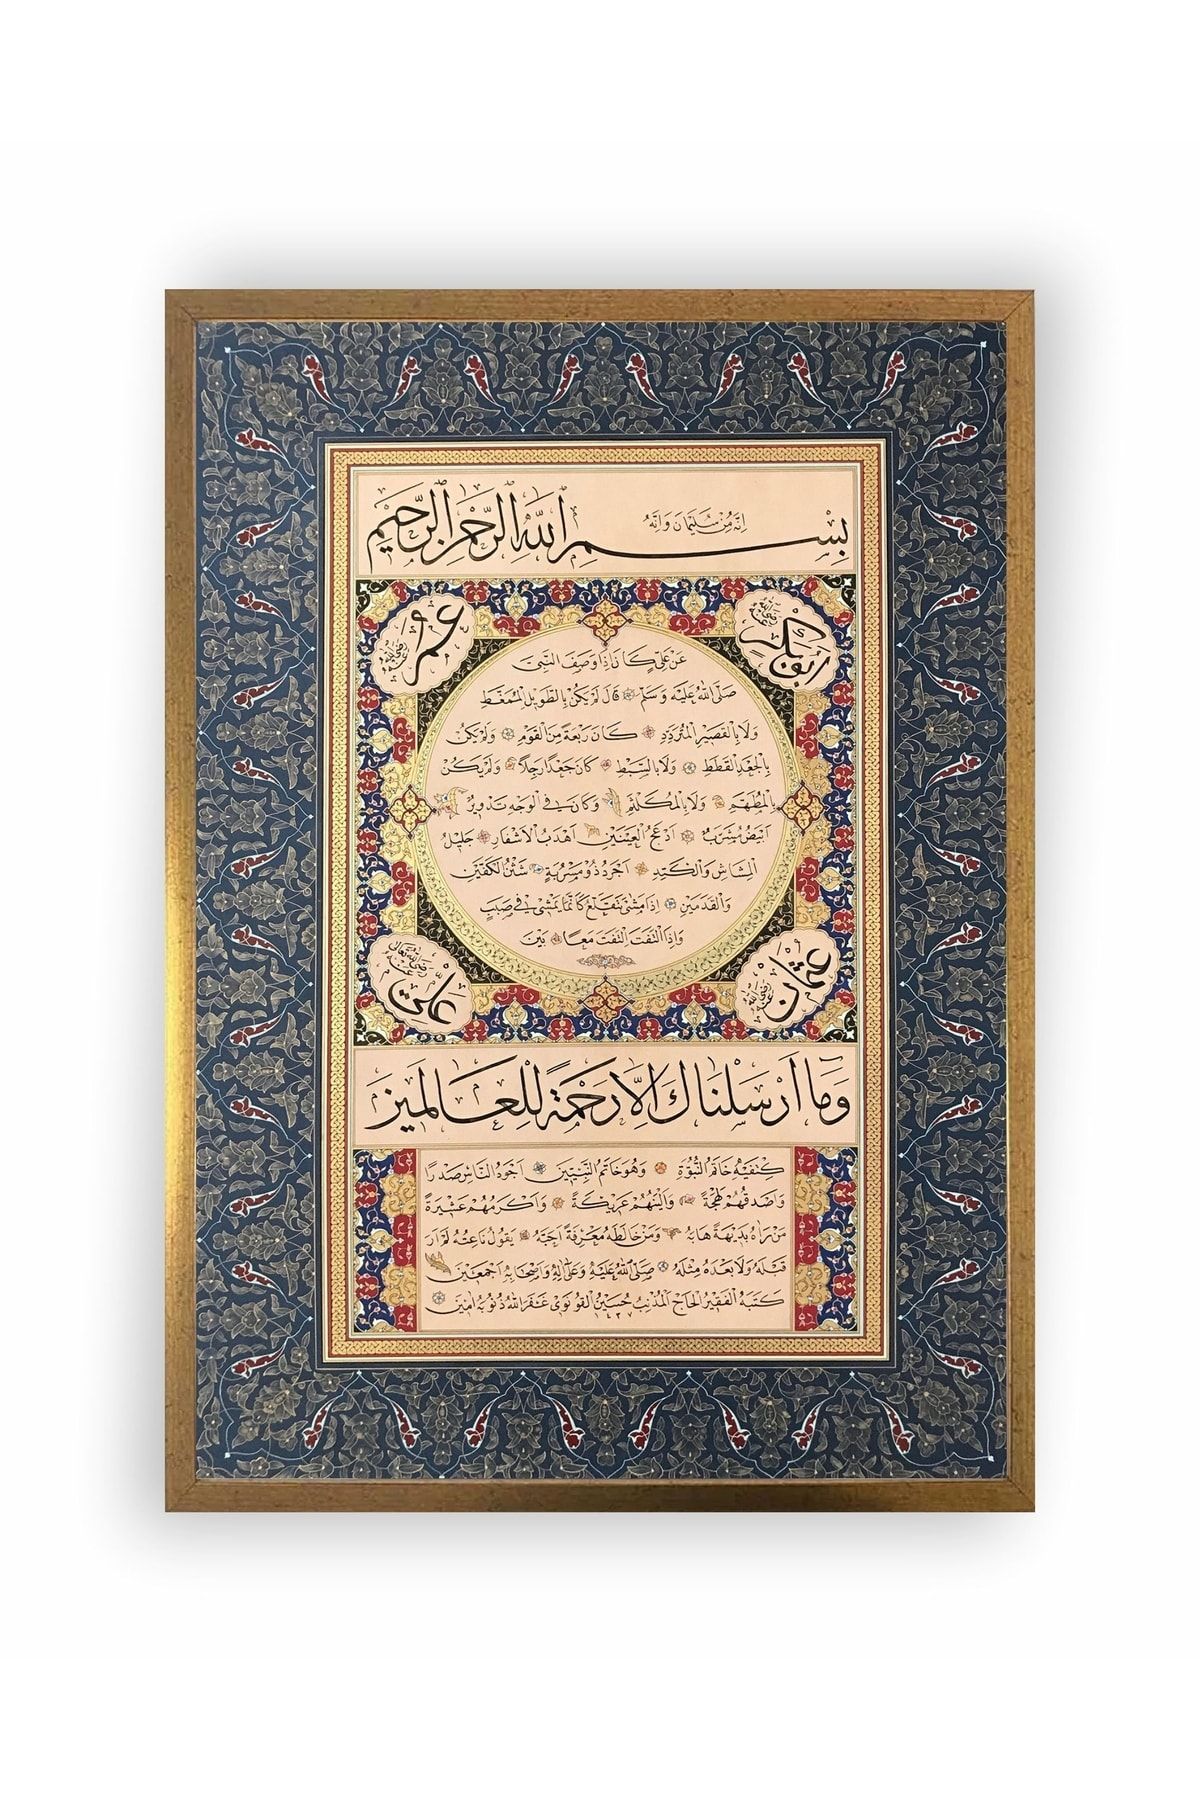 إنه من سليمان وإنه
بسم الله الرحمن الرحيم
ابو بكر رضي الله عنه
عمر رضي الله عنه
عن علي كان إذا وصف النبي
صلى الله عليه وسلم قال لم يكن بالطويل الممغط
ولا بالقصير المتردد كان ربعة من القوم ولم يكن
بالجعد القطط ولا بالسبط كان جعدا رجلا ولم يكن
بالمطهم ولا بالمكلثم وكان في الوجه تدوير
ابيض مشرب ادعج العينين اهدب الاشفار جليل
المشاش والكتد اجرد ذو مسربة شثن الكفين
والقدمين اذا مشى تقلع كانما يمشي في صبب
واذا التفت التفت معا بين
عثمان رضي الله عنه
علي رضي الله تعالى عنه
وما ارسلناك الا رحمة للعالمين
كتفيه خاتم النبوة وهو خاتم النبيين اجود الناس صدرا
واصدقهم لهجة والينهم عريكة واكرمهم عشيرة
من راه بديهة هابه ومن خالطه معرفة احبه يقول ناعته لم ار
قبله ولا بعده مثله صلى الله عليه وعلى اله واصحابه اجمعين
كتبه الفقير الحاج المذنب حسين القونوي غفر الله ذنوبه امين